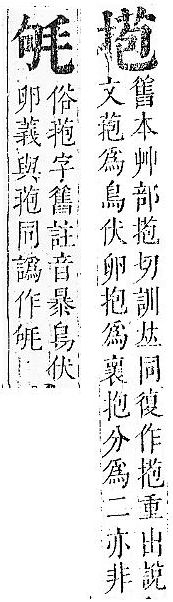 舊本艸部菢切訓𠀤同復作菢重出說
文菢爲鳥伏卵抱爲褱抱分爲二亦非
俗菢字舊註音暴鳥伏
卵義與菢同譌作